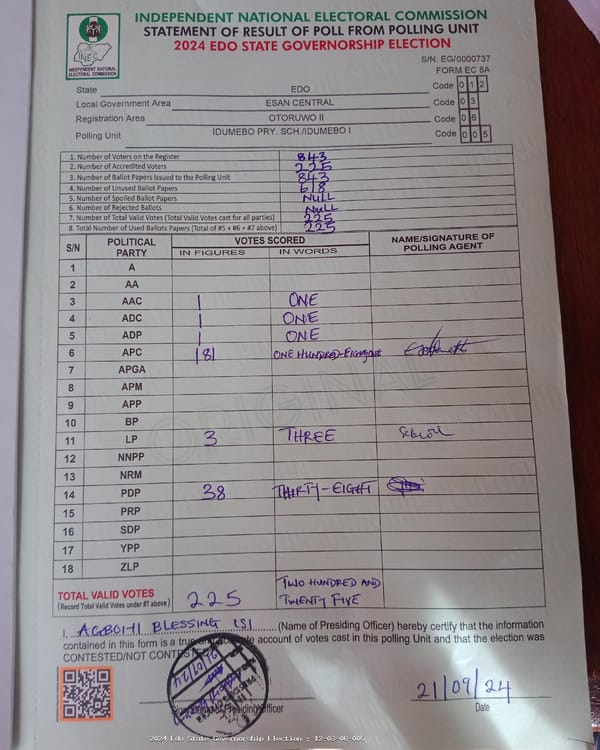 INDEPENDENT NATIONAL ELECTORAL COMMISSION
STATEMENT OF RESULT OF POLL FROM POLLING UNIT
2024 EDO STATE GOVERNORSHIP ELECTION
INEC
INDEPENDENT NATIONAL ELECTORAL COMMISSION
S/N: EG/0000737
FORM EC 8A
State EDO Code 0 1 2
Local Government Area ESAN CENTRAL Code 0 3
Registration Area OTORUWO II Code 0 6
Polling Unit IDUMEBO PRY. SCH./IDUMEBO I Code 0 0 5
1. Number of Voters on the Register 843
2. Number of Accredited Voters 225
3. Number of Ballot Papers Issued to the Polling Unit 843
4. Number of Unused Ballot Papers 618
5. Number of Spoiled Ballot Papers NULL
6. Number of Rejected Ballots NULL
7. Number of Total Valid Votes (Total Valid Votes cast for all parties) 225
8. Total Number of Used Ballots Papers (Total of #5 + #6 + #7 above) 225
S/N POLITICAL PARTY VOTES SCORED NAME/SIGNATURE OF POLLING AGENT
IN FIGURES IN WORDS
1 A
2 AA
3 AAC 1 ONE
4 ADC 1 ONE
5 ADP 1 ONE
6 APC 181 ONE HUNDRED-EIGHTY ONE
7 APGA
8 APM
9 APP
10 BP
11 LP 3 THREE
12 NNPP
13 NRM
14 PDP 38 THIRTY-EIGHT
15 PRP
16 SDP
17 YPP
18 ZLP
ORIGINAL
TOTAL VALID VOTES 225 TWO HUNDRED AND
(Record Total Valid Votes under #7 above) TWENTY FIVE
I, BLESSING ISI (Name of Presiding Officer) hereby certify that the information
contained in this form is a true account of votes cast in this polling Unit and that the election was
CONTESTED/NOT
Presiding Officer
21/09/24
Date
2024 Edo State Governorship Election : 12-03-06-005